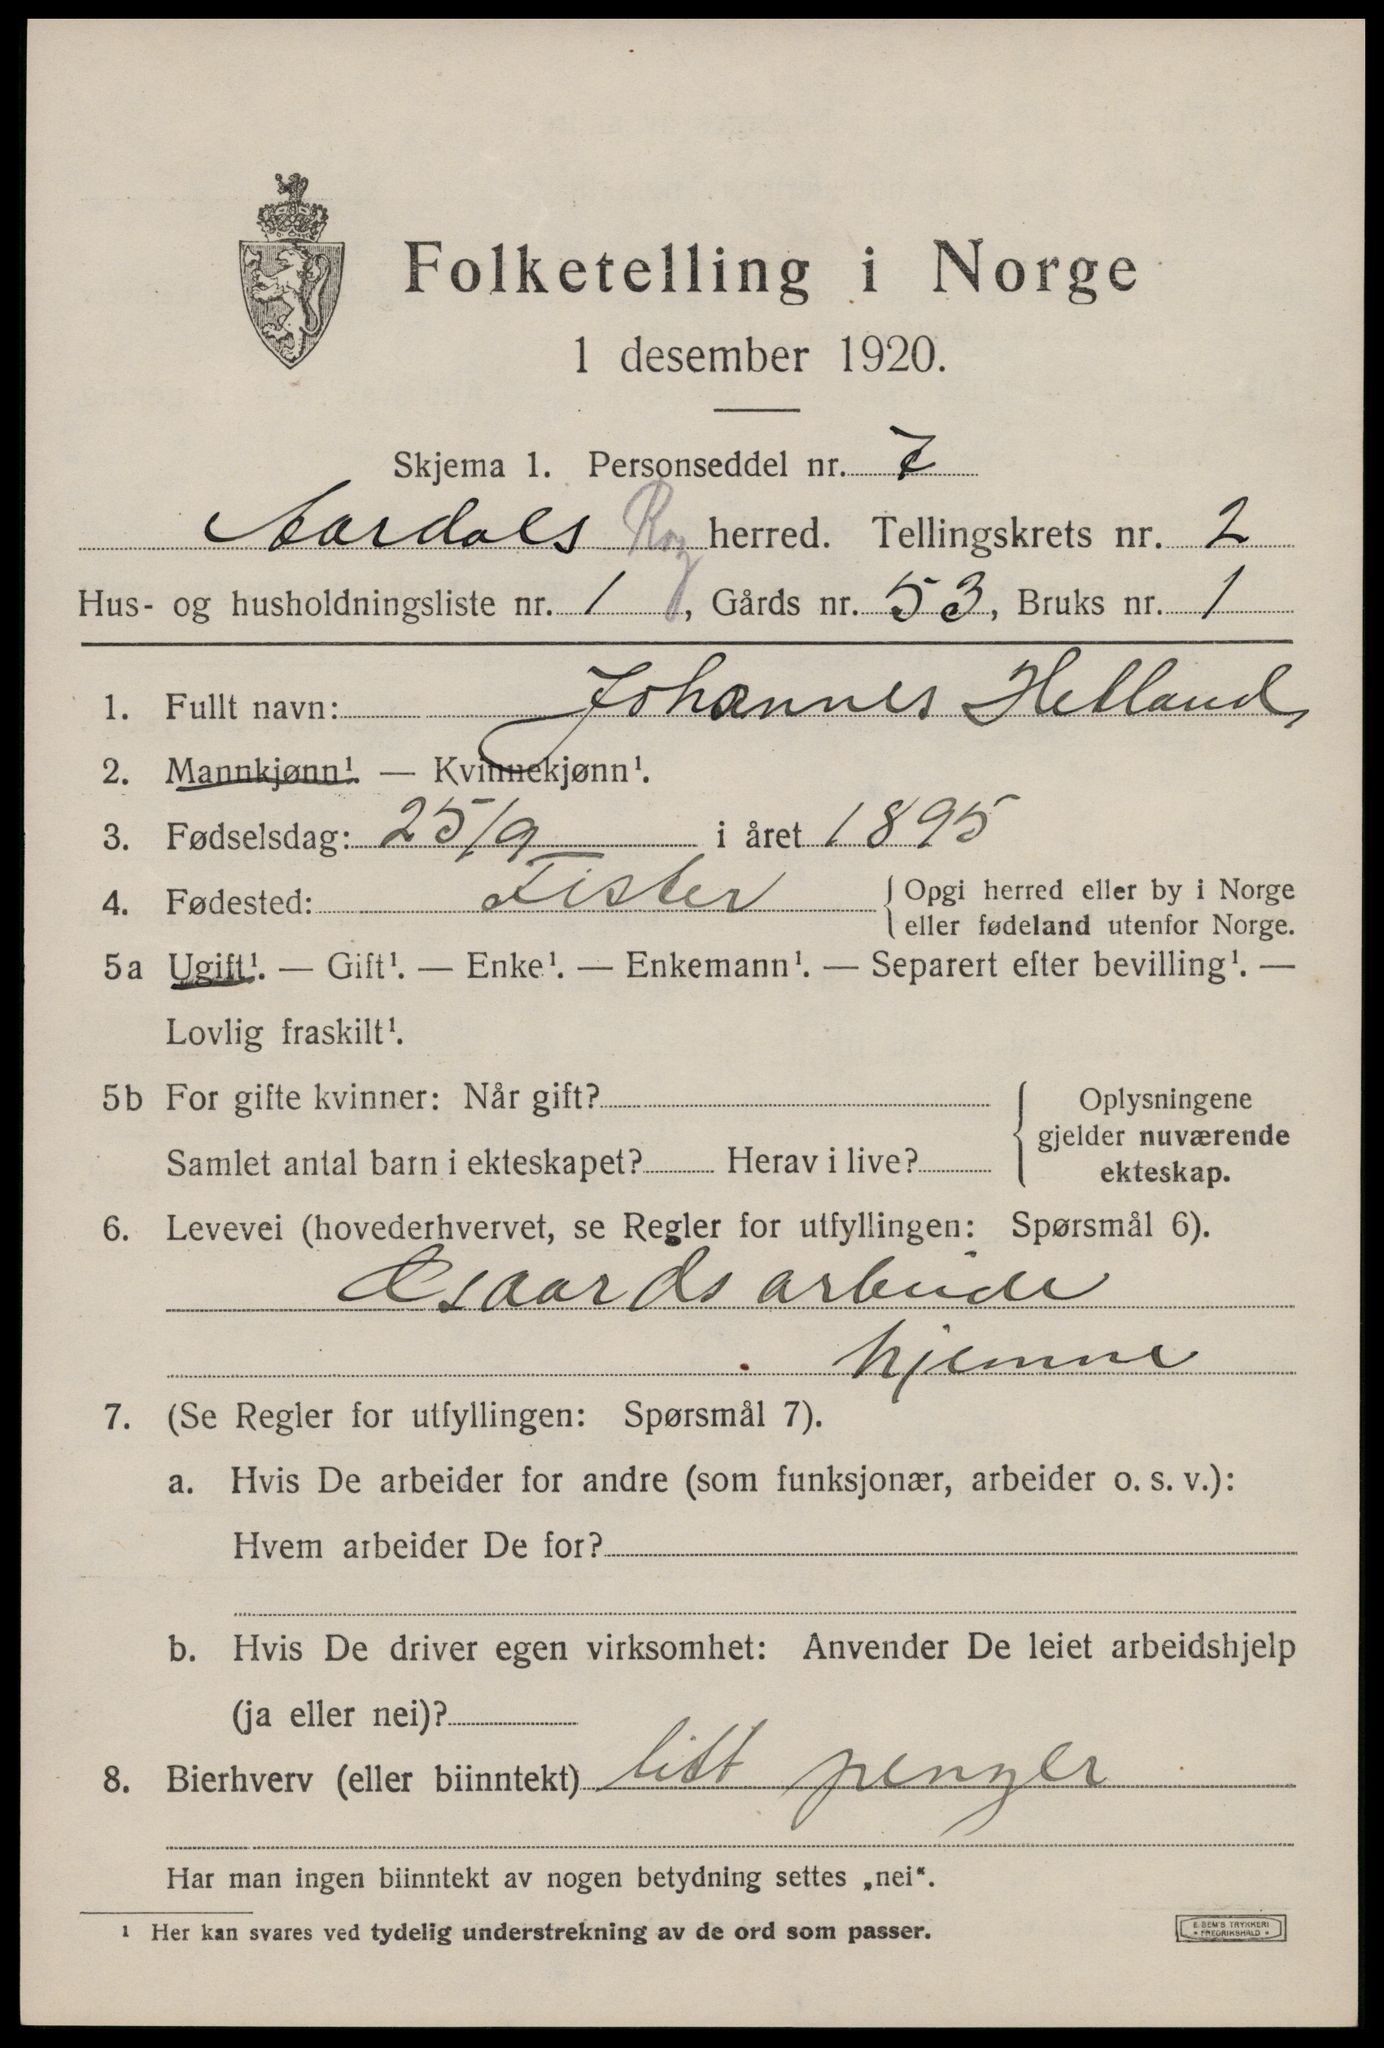 Folketelling i Norge
1 desember 1920.
Skjema 1. Personseddel nr. 7
Aardals Rog herred. Tellingskrets nr. 2
Hus- og husholdningsliste nr. 1, Gårds nr. 53, Bruks nr. 1
1. Fullt navn: Johannes Hetland
2. Mannkjønn¹. — Kvinnekjønn¹.
3. Fødselsdag: 25/9 i året 1895
4. Fødested: Fister { Opgi herred eller by i Norge
eller fødeland utenfor Norge.
5a Ugift¹. — Gift¹. — Enke¹. — Enkemann¹. — Separert efter bevilling¹. —
Lovlig fraskilt¹.
5b For gifte kvinner: Når gift? { Oplysningene
gjelder nuværende
Samlet antal barn i ekteskapet? Herav i live? ekteskap.
6. Levevei (hovederhvervet, se Regler for utfyllingen: Spørsmål 6).
Gaardsarbeide
hjemme
7. (Se Regler for utfyllingen: Spørsmål 7).
a. Hvis De arbeider for andre (som funksjonær, arbeider o. s. v.):
Hvem arbeider De for?
b. Hvis De driver egen virksomhet: Anvender De leiet arbeidshjelp
(ja eller nei)?
8. Bierhverv (eller biinntekt) litt penger
Har man ingen biinntekt av nogen betydning settes „nei“.
¹ Her kan svares ved tydelig understrekning av de ord som passer.
E. SEM'S TRYKKERI
• FREDRIKSHALD •